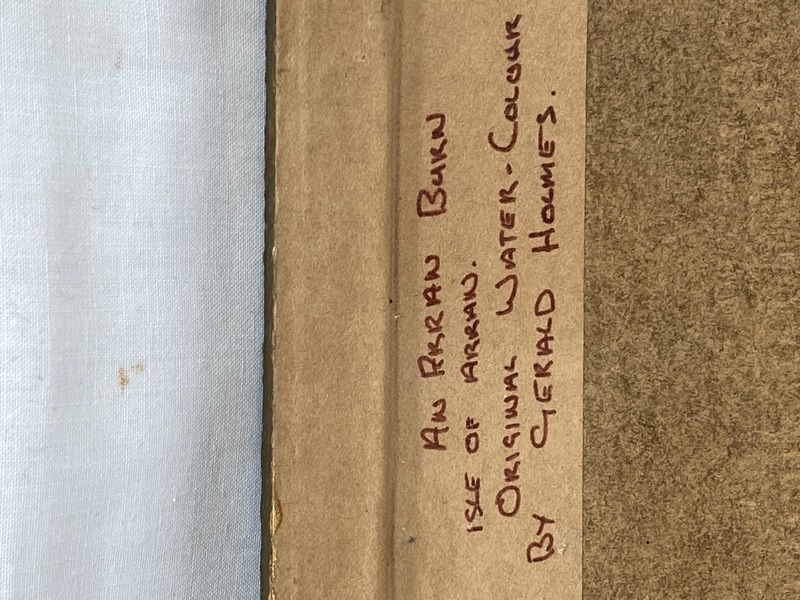 AN ARRAN BURN
ISLE OF ARRAN.
ORIGINAL WATER-COLOUR
BY GERALD HOLMES.